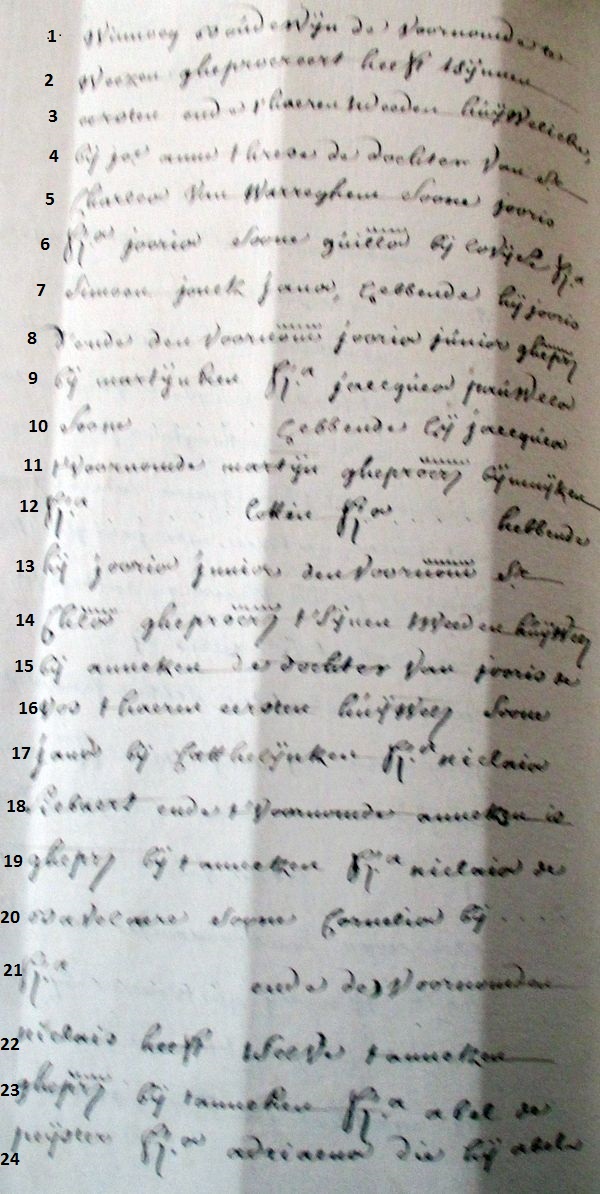 1 Winnocq vande Wijn de Voornomde
2 Weezen gheprocreert heeft t'sijnen
3 eersten ende t'haeren tweeden huijWelicke,
4 bij jo.e anne threse de dochter van Sr
5 Charles Van Warreghem Soone jooris
6 fs.a jooris Soone guilles bij fs.a
7 Simoen jonck jans, hebbende bij jooris
8 d'ende den Voornoms jooris junior gheprt
9 bij martijnken fs.a jacques pauWels
10 Soone hebbende bij jacques
11 t'Voornomde martijn gheprocrt bij maijken
12 fs.a Cottin fs.a hebbende
13 bij jooris junior den Voornoms Sr
14 gheprocrt t'Sijnen tweeden huijWel
15 bij anneken de dochter Van jooris de
16 Vos t'haeren eersten huijWel Soone
17 jans bij Cathelijnken fs.a niclais
18 Siebaert ende t'Voornomde anneken is
19 gheprt bij tanneken fs.a niclais de
20 Soone Cornelis bij
21 fs.a ende de Voornomden
22 niclais heeft tselve tanneken
23 gheprt bij tanneken fs.a abel de
24 peijster fs.a adriaens die bij abels